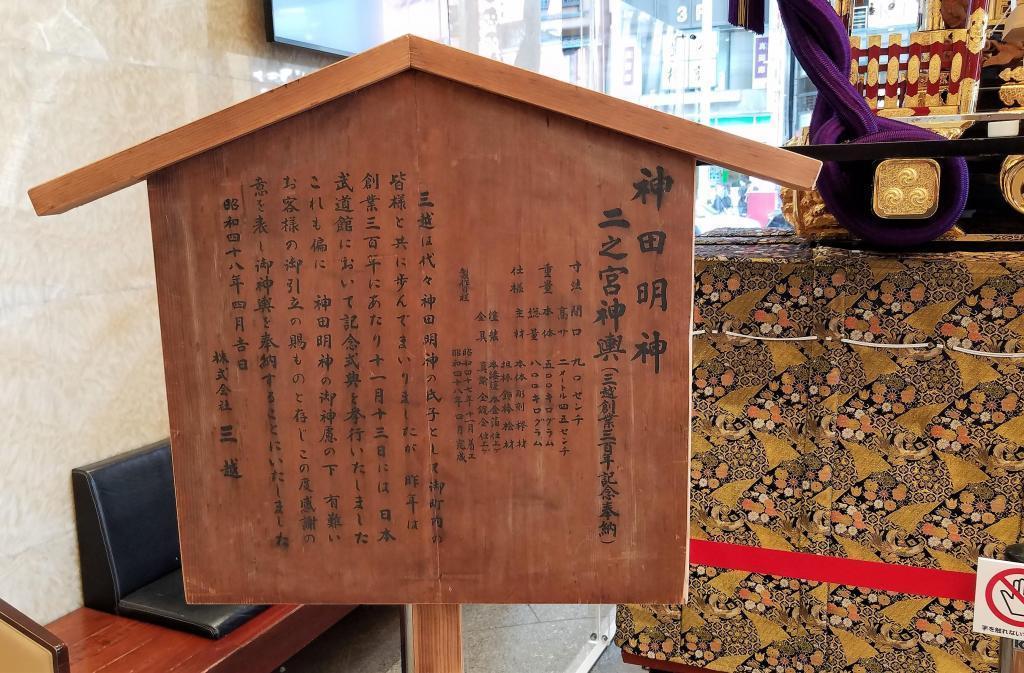 神田明神
二之宮神輿(三越創業三百年記念奉納)
寸法 間口 九〇センチ
高サ 二メートル四五センチ
重量 本体 五〇〇キログラム
総量 八〇〇キログラム
仕様 主材 本体彫刻欅材
担棒飾棒桧材
塗装 本漆塗本金箔仕上ゲ
金具 真鍮金鍍金仕上ゲ
昭和四十七年十一月着工
昭和四十八年四月完成
三越は代々神田明神の氏子として御町内の
皆様と共に歩んでまいりましたが 昨年は
創業三百年にあたり十一月十三日には 日本
武道館において記念式典を挙行いたしました
これも偏に 神田明神の御神慮の下 有難い
お客様の御引立の賜ものと存じこの度感謝の
意を表し御神輿を奉納することにいたしました
昭和四十八年四月吉日
株式会社 三越
手を触れない